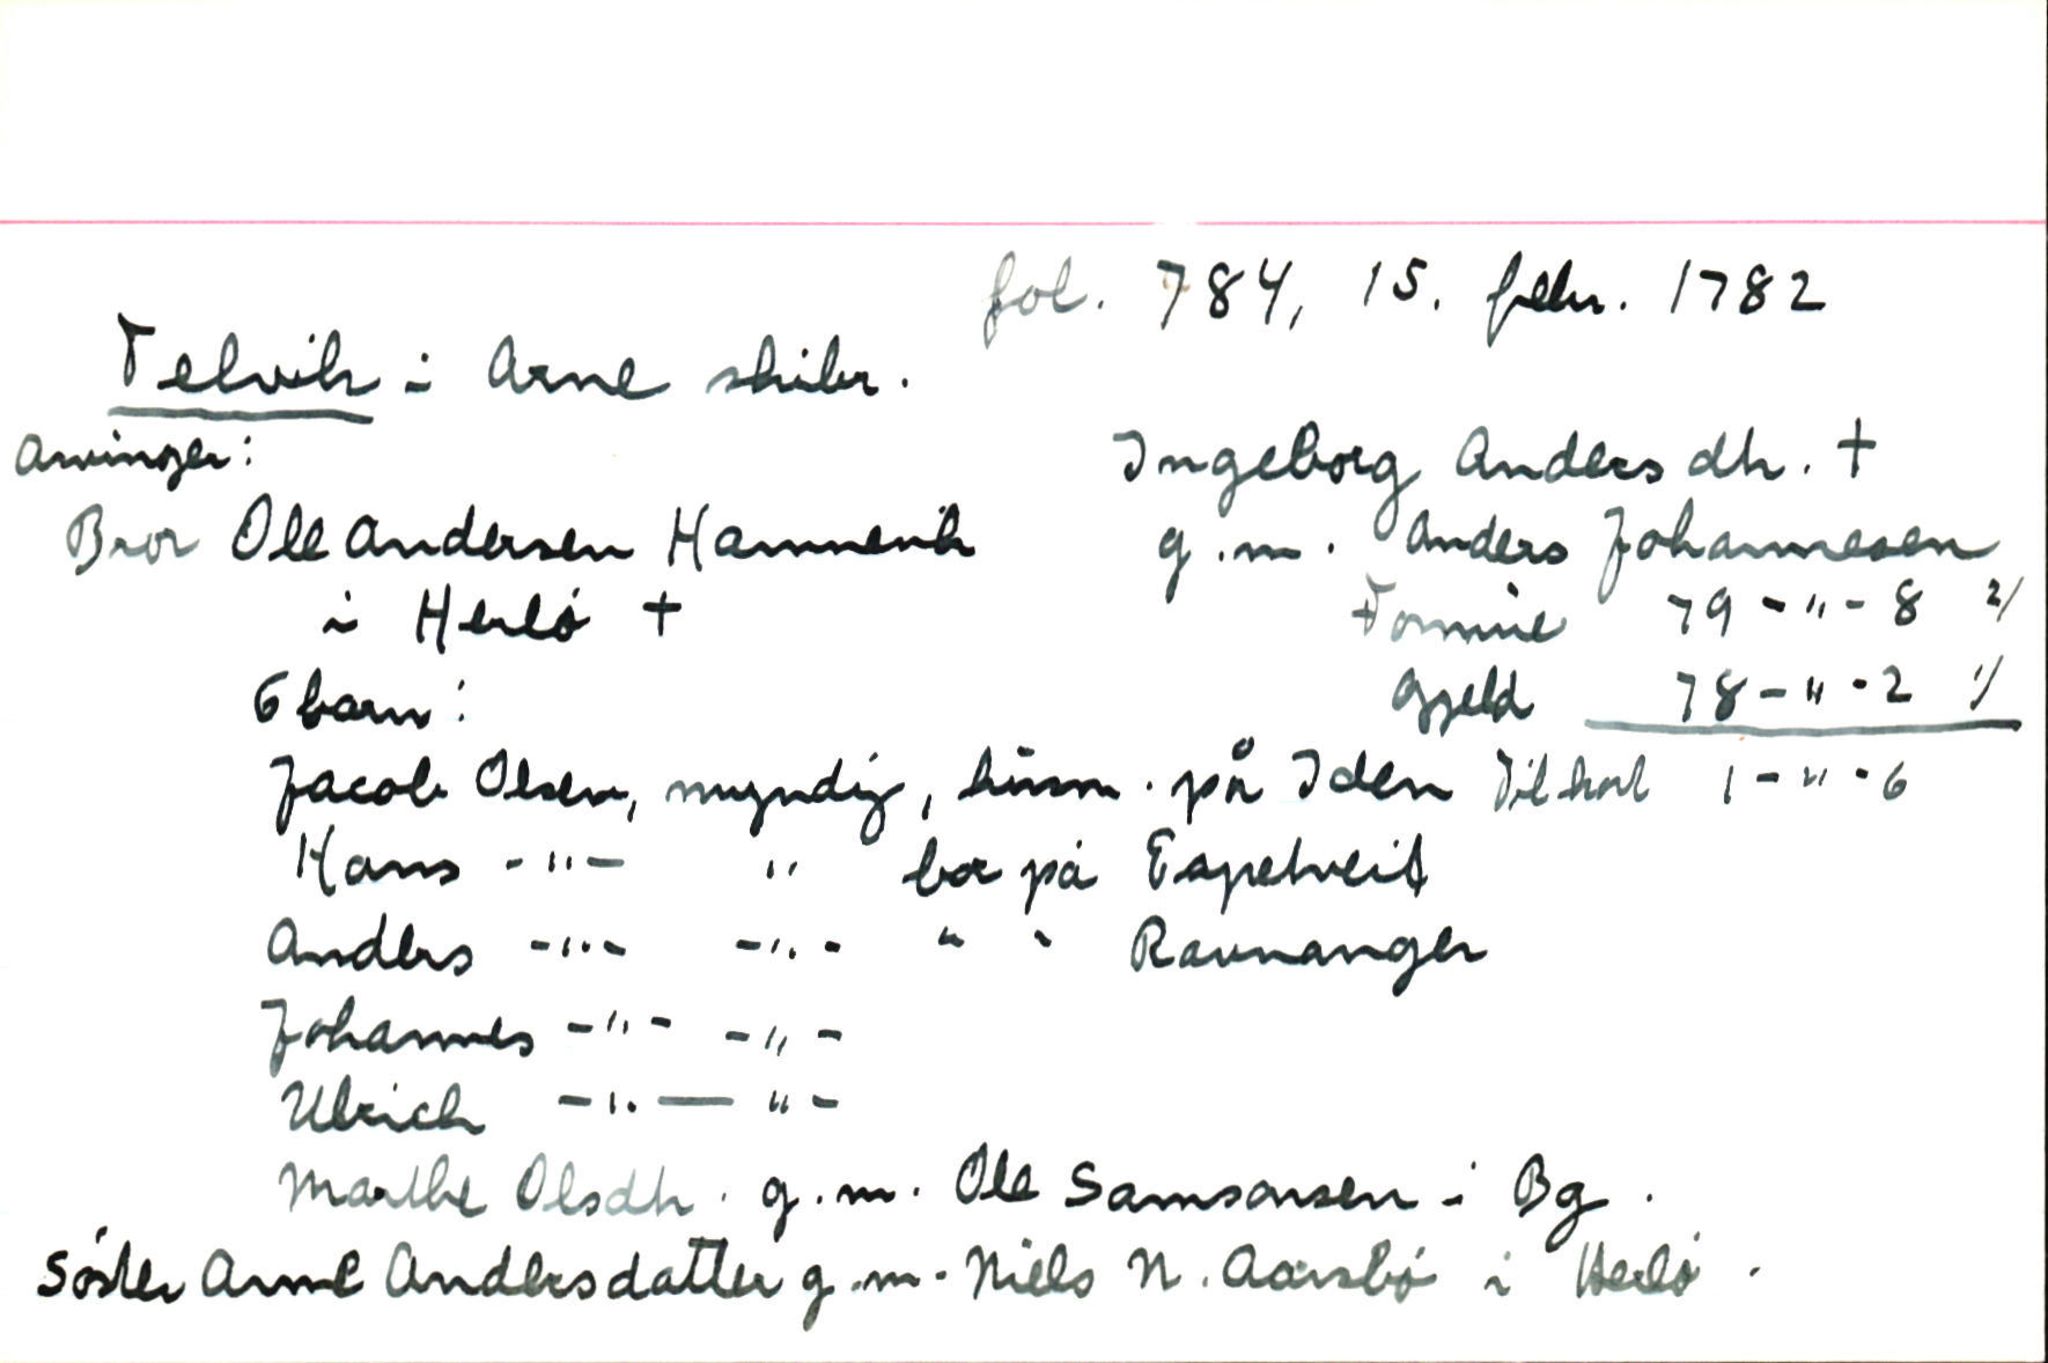 fol. 784, 15. febr. 1782
Telvik i Arne skibr.
Arvinger:
Ingeborg Andersdtr. †
Bror Ole Andersen Hamnevik
g.m. Anders Johannesen
i Herlø †
Formue 79 - " - 8 2/
6 barn:
Gjeld 78 - " - 2 1/
Jacob Olsen, myndig, husm. på Iden
Til hovl 1 - " - 6
Hans - " - " bor på Espetveit
Anders - " - - " - " " Ravnanger
Johannes - " - - " -
Ulrich - " — " -
Marthe Olsdtr. g.m. Ole Samsonsen i Bg.
Søster Arne Andersdatter g.m. Niels N. Aarsbø i Herlø.